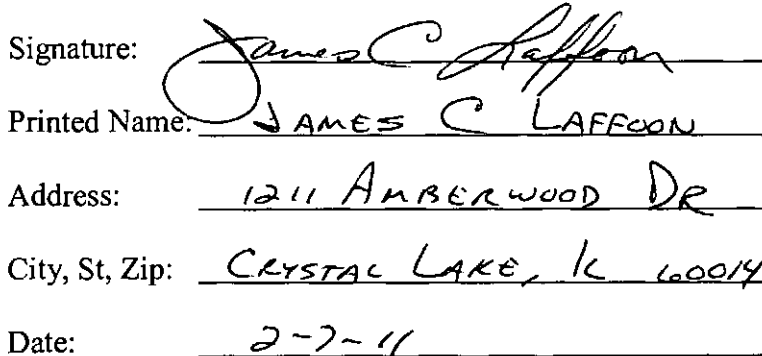 Signature: James C Laffoon
Printed Name: JAMES C LAFFOON
Address: 1211 AMBERWOOD DR
City, St, Zip: CRYSTAL LAKE, IL 60014
Date: 2-7-11